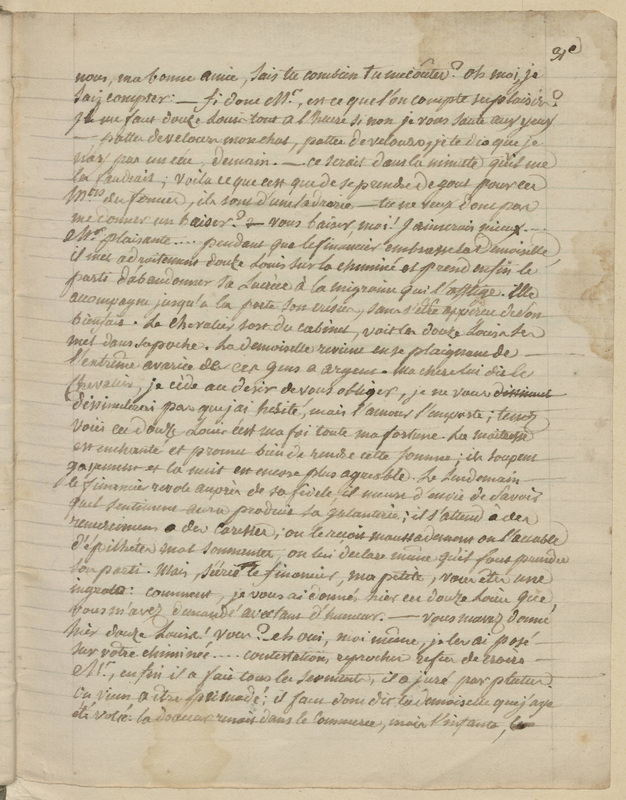 31e
nous, ma bonne amie, sais tu combien tu me coûtes? oh moi, je
sais compter: — fi donc Mr, est ce que l'on compte ses plaisirs?
il me faut douze Louis tout a l'heure si non je vous saute aux yeux
— patte de velour mon chat, patte de velours; je te dis que je
n'ai pas un écu, demain. — ce serait dans la minute qu'il me
les faudrait; voila ce que c'est que de se prendre de gout pour ces
Mrs du fermier, ils sont d'une ladrerie — tu ne veux donc pas
me donner un baiser? — vous baiser, moi! J'aimerais mieux. —
Mr plaisante.... pendant que le financier embrasse la Demoiselle
il met adroitement douze Louis sur la cheminée et prend enfin le
parti d'abandonner sa Lucrèce à la migraine qui l'afflige. Elle
acompagne jusqu'a la porte son crésus, sans s'être apperçue de son
bienfait. Le chevalier sort du cabinet, voit les douze Louis les
met dans sa poche. La demoiselle revient en se plaignant de
l'extrême avarice de ces gens a argent. Ma chere lui dit le
Chevalier, je cède au desir de vous obliger, je ne vous dissimul
dissimulerai pas que j'ai hésité, mais l'amour l'emporte; tenez
voici ces douze Louis c'est ma foi toute ma fortune. La maitresse
est enchantée et promet bien de rendre cette somme; ils soupent
gayement et la nuit est encore plus agreable. Le lendemain
le financier revole auprès de sa fidele, il meurt d'envie de savoir
quel sentiment aura produit sa galanterie; il s'attend à des
remerciemens a des caresses; on le reçoit maussadement on l'accable
d'épithetes mal sonnantes, on lui declare même qu'il faut prendre
son parti. Mais, s'écrie le financier, ma petite, vous êtes une
ingrate: comment, je vous ai donné hier ces douze Louis que
vous m'avez demandé avec tant d'humeur. — vous m'avez donné
hier douze Louis! vous? eh oui, moi même, je les ai posé
sur votre cheminée.... contestation, reproches refus de croire
Mr, enfin il a fait tous les serments, il a juré par Plutus.
on vient a être persuadé; il faut donc dit la demoiselle que j'aye
été volée la douceur renait dans le commerce, mais l'infante,